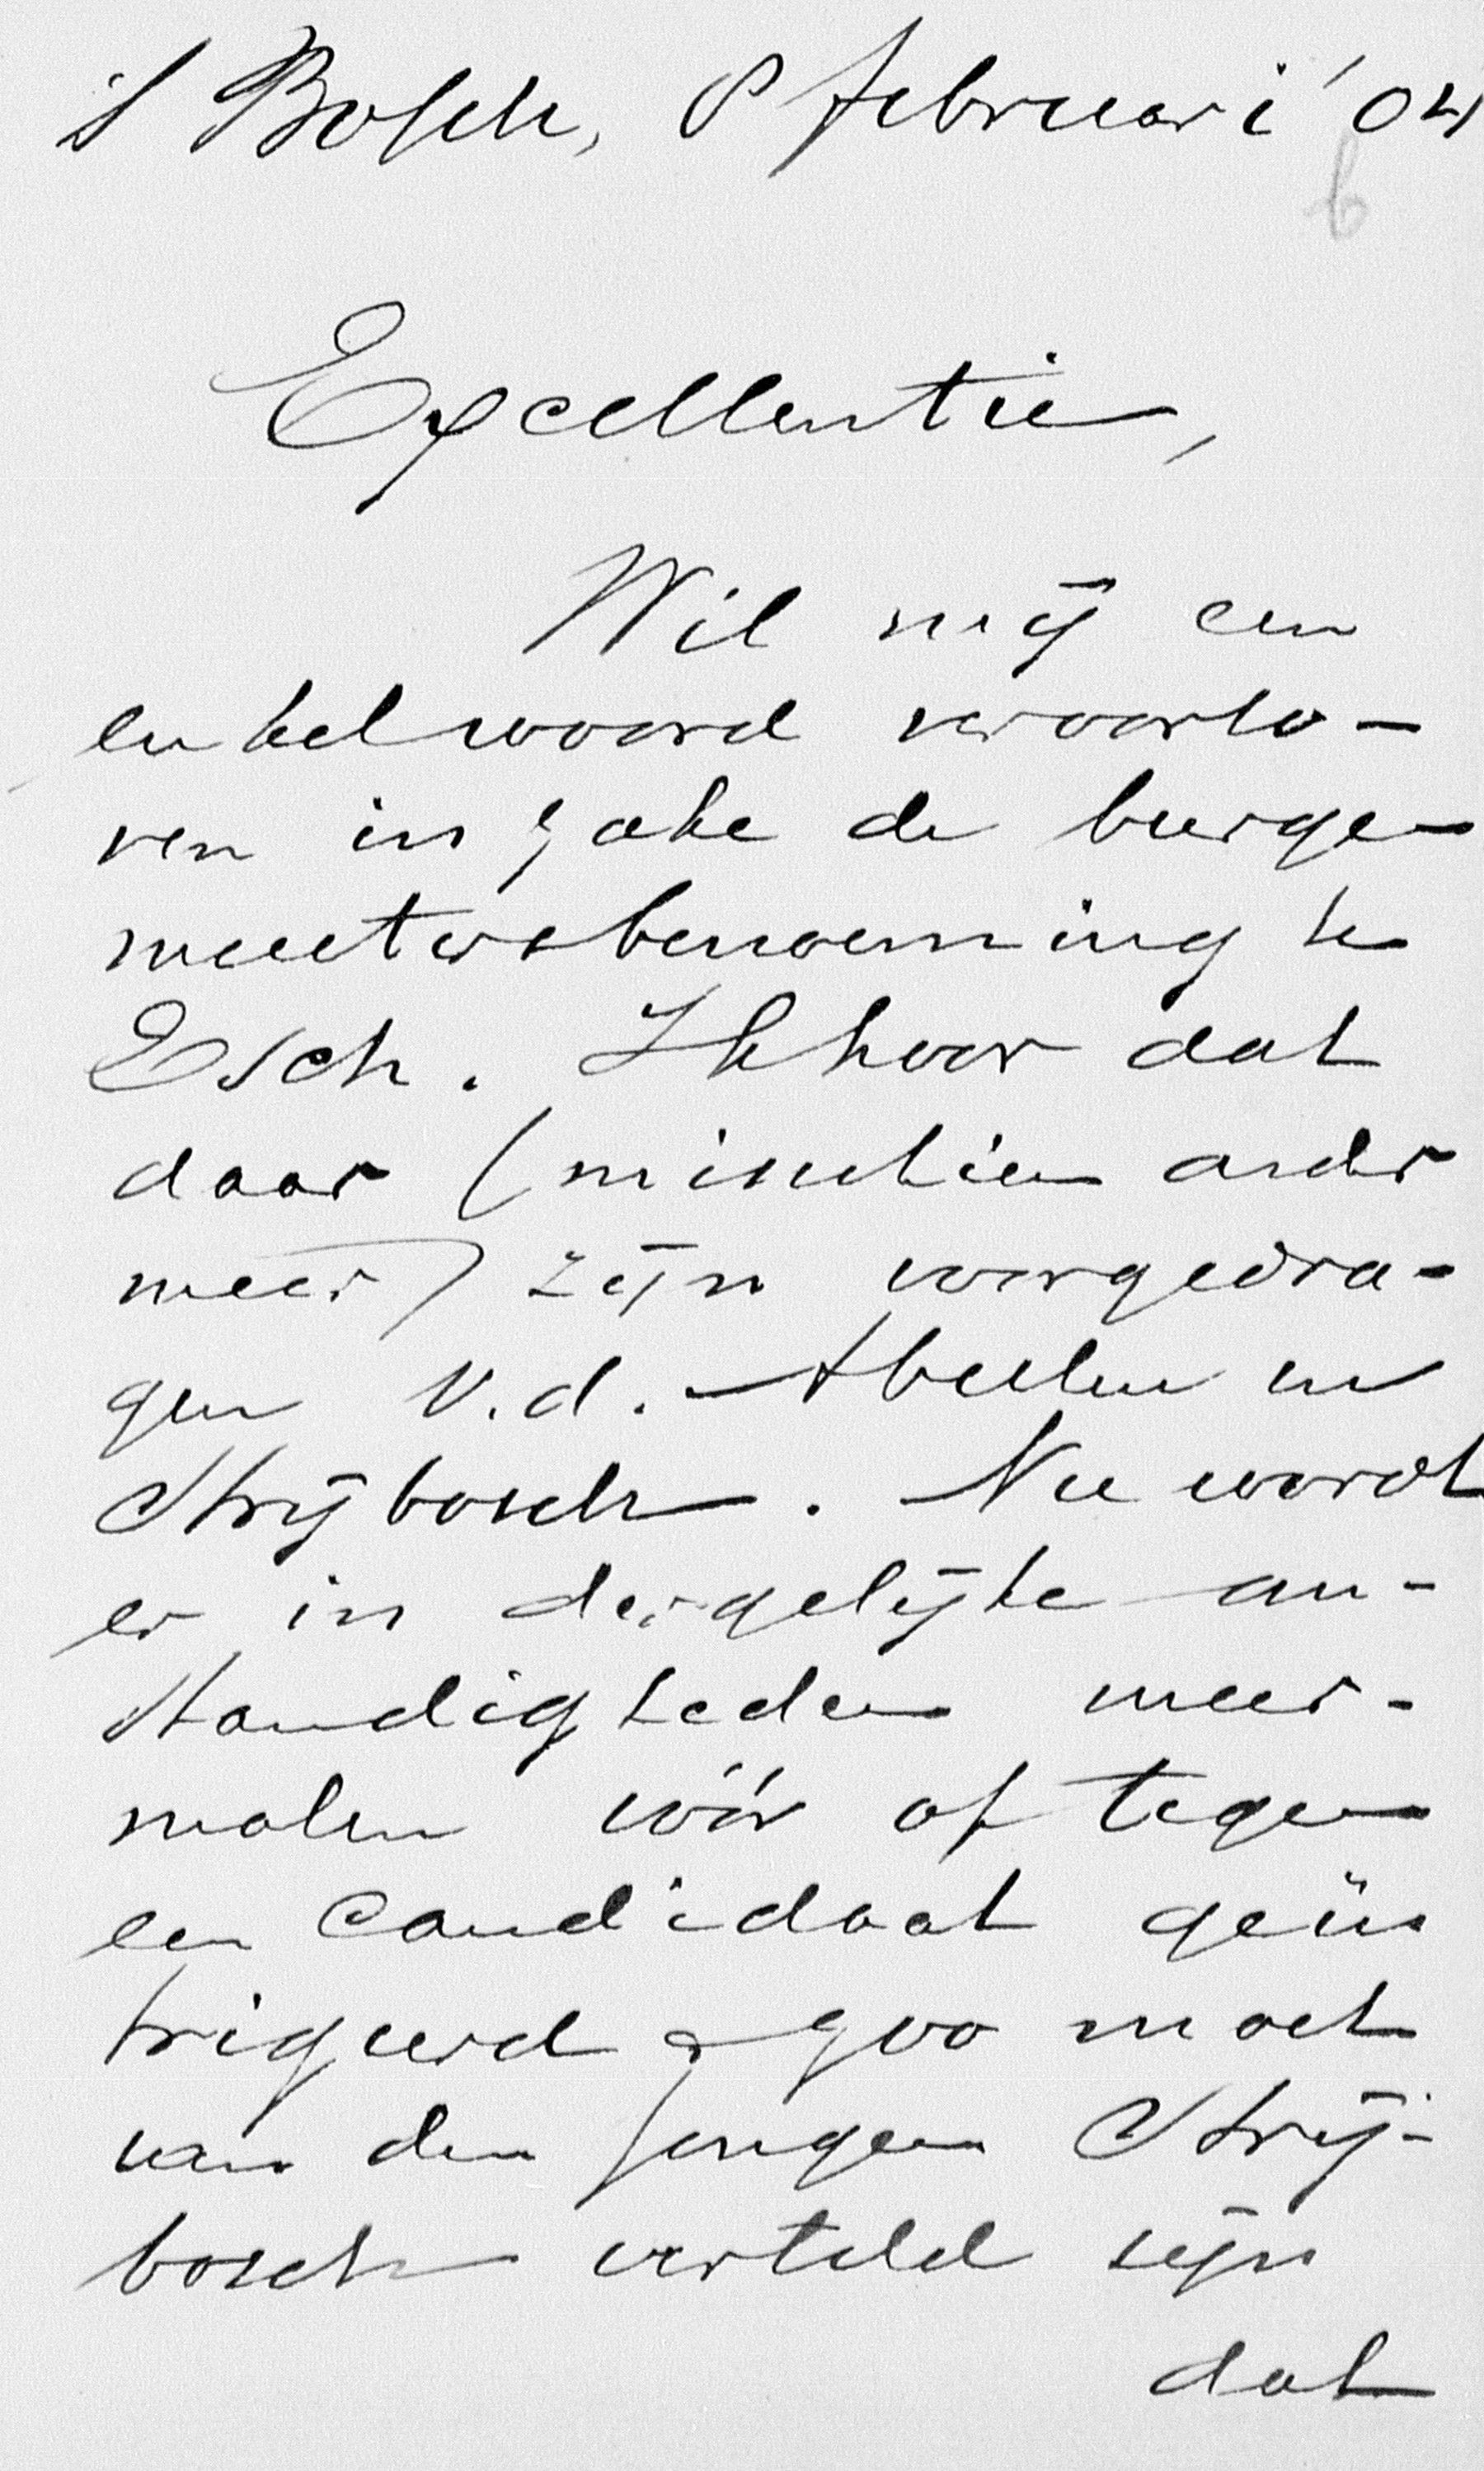 's Bosch, 8 februari '04
6
Excellentie,
Wil mij een
enkel woord veroorlo-
ven in zake de burge-
meestersbenoeming te
Esch. Ik hoor dat
daar (misschien onder
meer) zijn voorgedra-
gen v.d. Abeelen en
Strijbosch. Nu wordt
er in dergelijke om-
standigheden meer-
malen vóór of tegen
een candidaat geïn
trigeerd & zoo moet
van den jongen Strij-
bosch verteld zijn
dat